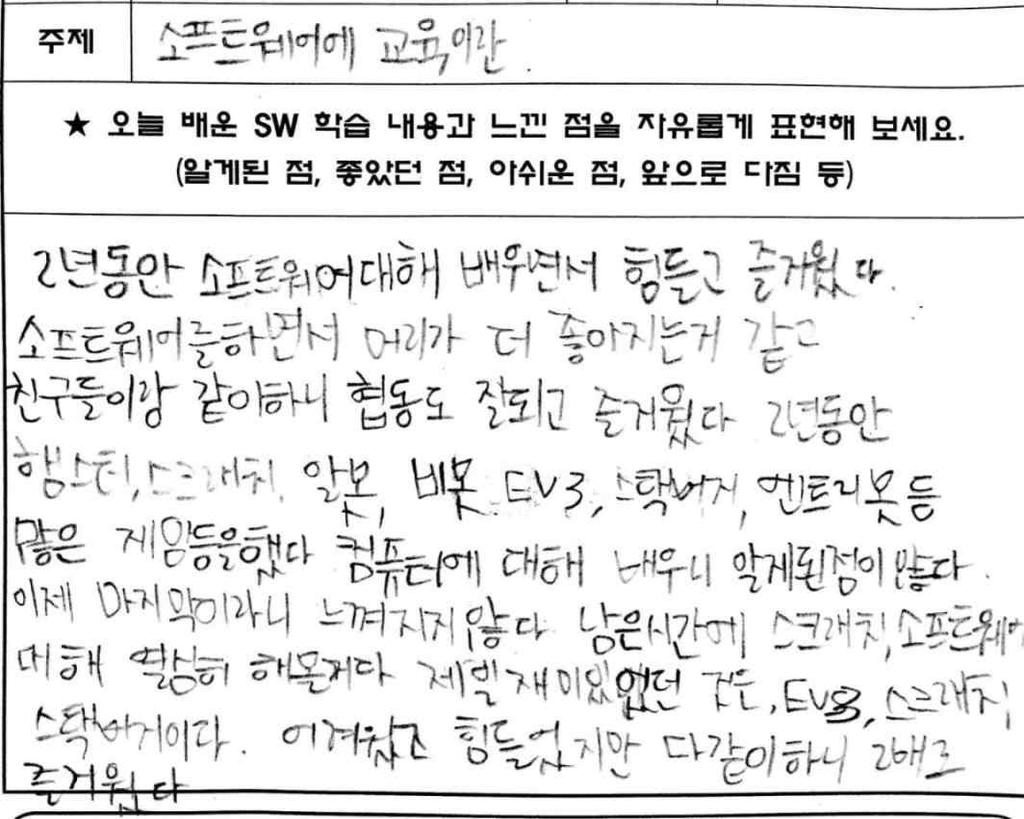 주제 소프트웨어에 교육이란.
★ 오늘 배운 SW 학습 내용과 느낀 점을 자유롭게 표현해 보세요.
(알게된 점, 좋았던 점, 아쉬운 점, 앞으로 다짐 등)
2년동안 소프트워어대해 배우면서 힘들고 즐거웠다.
소프트웨어를하면서 머리가 더 좋아지는게 같고
친구들이랑 같이하니 협동도 잘되고 즐거웠다 2년동안
햄스터, 스크래치, 알봇, 비봇, EV3, 스택버거, 엔트리봇등
많은 게임등을했다 컴퓨터에 대해 배우니 알게된점이 많다.
이제 마지막이라니 느껴지지않다 남은시간에 스크래치, 소프트웨어
대해 열심히 해볼거다 제일재미있었던 것은, EV3, 스크래치,
스택버거이다. 어려웠고 힘들었지만 다같이하니 2배로
즐거웠다